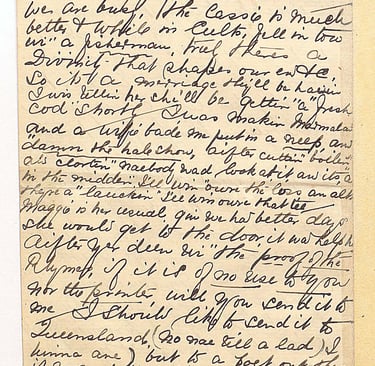 we are busy, the Cassie is much
better & while in Cults, fell in tow
wi' a fisherman, truly there's a
Divinity that shapes our end &c.
So it's a marriage they'll be haein
I wis tellin her she'll be gettin' a "fresh
cod" shortly. I was makin Marmalade
and a wife bade me put in a neep, an'
"damn the hale chow, aifter cuttin' boilin'
an' clortin" naebody wad look at it aw it's a'
in the midden. I'll win owre the loss an a'
there's a' lauchin' I'll win owre that tee
Maggie is her usual, gin we had better days
she would get to the door, it wad help her
Aifter yer deen wi' "the proof of the
Rhymes, if it is of no use to you
nor the printer, will you send it to
me, I should like to send it to
Queensland, (no nae till a lad, I
hinna ane) but to a poet oot there